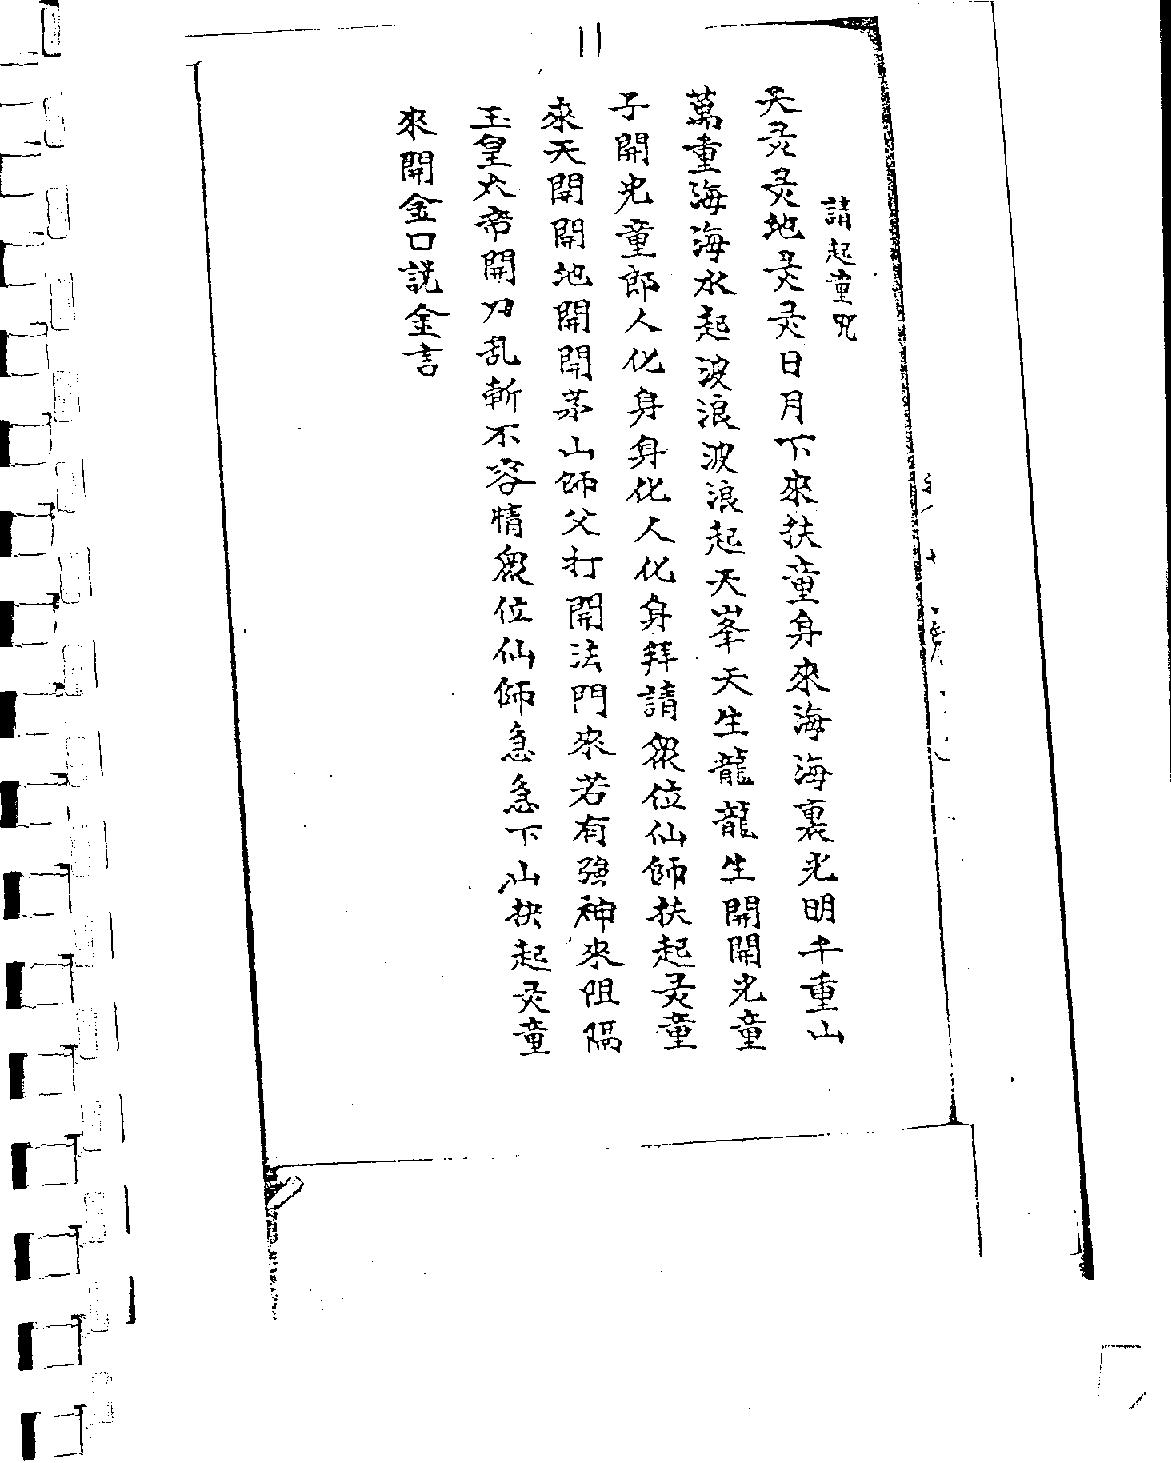 11
請起童咒
天灵灵地灵灵日月下來扶童身來海海裏光明千重山
萬重海海水起波浪波浪起天峯天生龍龍生開開光童
子開光童郎人化身身化人化身拜請衆位仙師扶起灵童
來天開開地開開茅山師父打開法門來若有強神來阻隔
玉皇大帝開刀乱斬不容情衆位仙師急急下山扶起灵童
來開金口説金言